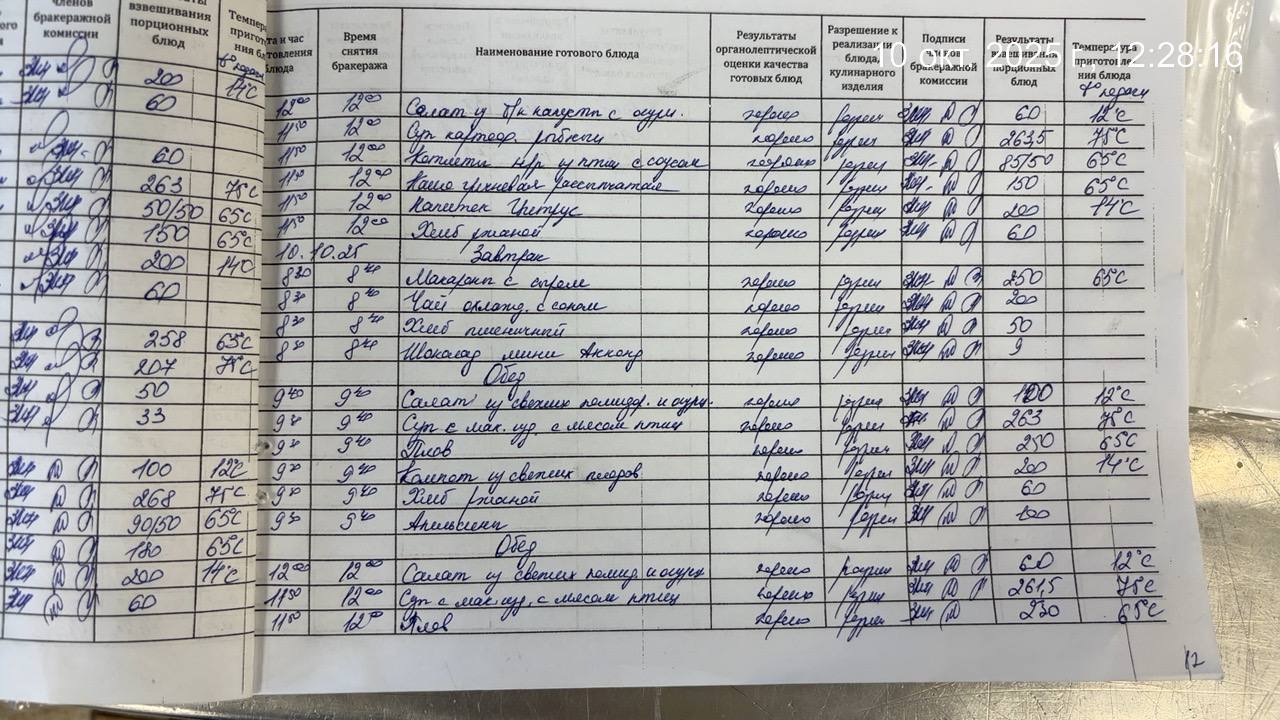 Членов бракеражной комиссии
взвешивания порционных блюд
t° подачи
200 14°С
60
60
263 75°С
50/50 65°С
150 65°С
200 14°
60
258 65°С
207 75°С
50
33
100 12°С
268 75°С
90/50 65°С
180 65°С
200 14°С
60
Время снятия бракеража
Наименование готового блюда
Результаты органолептической оценки качества готовых блюд
Разрешение к реализации блюда, кулинарного изделия
Подписи бракеражной комиссии
Результаты взвешивания порционных блюд
Температура приготовления блюда
t° подачи
10 окт. 2025 г., 12:28:16
12⁰⁰ 12⁰⁰ Салат из б/к капусты с огурц. хорошо разреш 60 12°С
11⁵⁰ 12⁰⁰ Суп картоф. рыбный хорошо разреш 263,5 75°С
11⁵⁰ 12⁰⁰ Котлеты н/р из птицы с соусом хорошо разреш 85/50 65°С
11⁵⁰ 12⁰⁰ Каша гречневая рассыпчатая хорошо разреш 150 65°С
11⁵⁰ 12⁰⁰ Напиток Цитрус хорошо разреш 200 14°С
11⁵⁰ 12⁰⁰ Хлеб ржаной хорошо разреш 60
10.10.25 Завтрак
8³⁰ 8⁴⁰ Макароны с сыром хорошо разреш 250 65°С
8³⁰ 8⁴⁰ Чай охлажд. с соком хорошо разреш 200
8³⁰ 8⁴⁰ Хлеб пшеничный хорошо разреш 50
8³⁰ 8⁴⁰ Шоколад мини Акконд хорошо разреш 9
Обед
9⁴⁰ 9⁴⁰ Салат из свежих помидор. и огурц. хорошо разреш 100 12°С
9³⁰ 9⁴⁰ Суп с мак. изд. с мясом птицы хорошо разреш 263 75°С
9³⁰ 9⁴⁰ Плов хорошо разреш 250 65°С
9³⁰ 9⁴⁰ Компот из свежих плодов хорошо разреш 200 14°С
9³⁰ 9⁴⁰ Хлеб ржаной хорошо разреш 60
9³⁰ 9⁴⁰ Апельсины хорошо разреш 100
Обед
12⁰⁰ 12⁰⁰ Салат из свежих помид. и огурц хорошо разреш 60 12°С
11⁵⁰ 12⁰⁰ Суп с мак. изд. с мясом птицы хорошо разреш 261,5 75°С
11⁵⁰ 12⁰⁰ Плов хорошо разреш 230 65°С
12